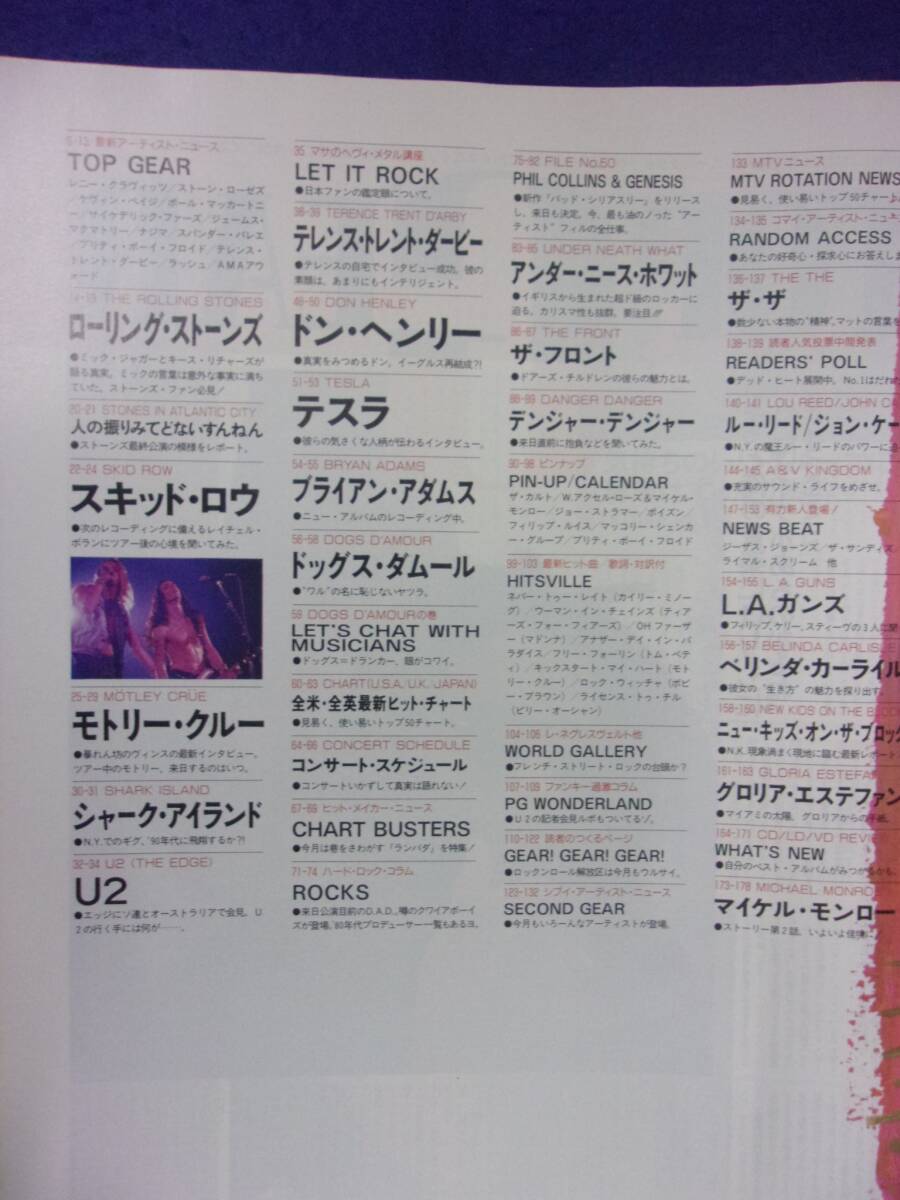 6-13 最新アーティスト・ニュース
TOP GEAR
レニー・クラヴィッツ/ストーン・ローゼズ
/ケヴィン・ペイジ/ポール・マッカートニ
ー/サイケデリック・ファーズ/ジェームス・
マクマトリー/ナジマ/スパンダー・バレエ
/プリティ・ボーイ・フロイド/テレンス・
トレント・ダービー/ラッシュ/AMAアウ
ォード
14-19 THE ROLLING STONES
ローリング・ストーンズ
●ミック・ジャガーとキース・リチャーズが
語る真実。ミックの言葉は意外な事実に満ち
ていた。ストーンズ・ファン必見!
20-21 STONES IN ATLANTIC CITY
人の振りみてどないすんねん
●ストーンズ最終公演の模様をレポート。
22-24 SKID ROW
スキッド・ロウ
●次のレコーディングに備えるレイチェル・
ボランにツアー後の心境を聞いてみた。
25-29 MÖTLEY CRÜE
モトリー・クルー
●暴れん坊のヴィンスの最新インタビュー。
ツアー中のモトリー。来日するのはいつ。
30-31 SHARK ISLAND
シャーク・アイランド
●N.Y.でのギグ。'90年代に飛翔するか?!
32-34 U2 (THE EDGE)
U2
●エッジにソ連とオーストラリアで会見。U
2の行く手には何が——。
35 マサのヘヴィ・メタル講座
LET IT ROCK
●日本ファンの鑑定眼について。
36-39 TERENCE TRENT D'ARBY
テレンス・トレント・ダービー
●テレンスの自宅でインタビュー成功。彼の
素顔は、あまりにもインテリジェント。
46-50 DON HENLEY
ドン・ヘンリー
●真実をみつめるドン。イーグルス再結成?!
51-53 TESLA
テスラ
●彼らの気さくな人柄が伝わるインタビュー。
54-55 BRYAN ADAMS
ブライアン・アダムス
●ニュー・アルバムのレコーディング中。
56-58 DOGS D'AMOUR
ドッグス・ダムール
●"ワル"の名に恥じないヤツラ。
59 DOGS D'AMOURの巻
LET'S CHAT WITH
MUSICIANS
●ドッグス=ドランカー。眼がコワイ。
60-63 CHART(U.S.A./U.K./JAPAN)
全米・全英最新ヒット・チャート
●見易く、使い易いトップ50チャート。
64-66 CONCERT SCHEDULE
コンサート・スケジュール
●コンサートいかずして真実は語れない!
67-69 ヒット・メイカー・ニュース
CHART BUSTERS
●今月は巷をさわがす「ランバダ」を特集!
71-74 ハード・ロック・コラム
ROCKS
●来日公演目前のD.A.D.、噂のクワイアボーイ
ズが登場。'80年代プロデューサー一覧もあるヨ。
75-82 FILE No.50
PHIL COLLINS & GENESIS
●新作『バッド・シリアスリー』をリリース
し、来日も決定。今、最も油のノッた"アー
ティスト"フィルの全仕事。
83-85 UNDER NEATH WHAT
アンダー・ニース・ホワット
●イギリスから生まれた超ド級のロッカーに
迫る。カリスマ性も抜群。要注目!!
86-87 THE FRONT
ザ・フロント
●ドアーズ・チルドレンの彼らの魅力とは。
88-89 DANGER DANGER
デンジャー・デンジャー
●来日直前に抱負などを聞いてみた。
90-98 ピンナップ
PIN-UP/CALENDAR
ザ・カルト/W.アクセル・ローズ&マイケル・
モンロー/ジョー・ストラマー/ポイズン/
フィリップ・ルイス/マッコリー・シェンカ
ー・グループ/プリティ・ボーイ・フロイド
99-103 最新ヒット曲 歌詞・対訳付
HITSVILLE
ネバー・トゥー・レイト(カイリー・ミノー
グ)/ウーマン・イン・チェインズ(ティア
ーズ・フォー・フィアーズ)/OHファーザ
ー(マドンナ)/アナザー・デイ・イン・パ
ラダイス/フリー・フォーリン(トム・ペテ
ィ)/キックスタート・マイ・ハート(モト
リー・クルー)/ロック・ウィッチャ(ボビ
ー・ブラウン)/ライセンス・トゥ・チル
(ビリー・オーシャン)
104-106 レ・ネグレスヴェルト他
WORLD GALLERY
●フレンチ・ストリート・ロックの台頭か?
107-109 ファンキー過激コラム
PG WONDERLAND
●U2の記者会見ルポもついてるゾ。
110-122 読者のつくるページ
GEAR! GEAR! GEAR!
●ロックンロール解放区は今月もウルサイ。
123-132 シブイ・アーティスト・ニュース
SECOND GEAR
●今月もいろーんなアーティストが登場。
133 MTVニュース
MTV ROTATION NEWS
●見易く、使い易いトップ50チャー
134-135 コマイ・アーティスト・ニュース
RANDOM ACCESS
●あなたの好奇心・探求心にお答えしま
136-137 THE THE
ザ・ザ
●数少ない本物の"精神"、マットの言葉を
138-139 読者人気投票中間発表
READERS' POLL
●デッド・ヒート展開中。No.1はだれ
140-141 LOU REED/JOHN CA
ルー・リード/ジョン・ケー
●N.Y.の魔王ルー・リードのパワーに迫
144-145 A&V KINGDOM
●充実のサウンド・ライフをめざせ。
147-153 有力新人登場!
NEWS BEAT
ジーザス・ジョーンズ/ザ・サンデイズ/
ライマル・スクリーム 他
154-155 L.A. GUNS
L.A.ガンズ
●フィリップ、ケリー、スティーヴの3人に聞
156-157 BELINDA CARLISLE
ベリンダ・カーライル
●彼女の"生き方"の魅力を探り出す。
158-160 NEW KIDS ON THE BLOCK
ニュー・キッズ・オン・ザ・ブロック
●N.K.現象渦まく現地に臨む最新レポート
161-163 GLORIA ESTEFA
グロリア・エステファン
●マイアミの太陽、グロリアからの手紙。
164-171 CD/LD/VD REVIE
WHAT'S NEW
●自分のベスト・アルバムがみつかるかも。
173-178 MICHAEL MONRO
マイケル・モンロー
●ストーリー第2話。いよいよ佳境に